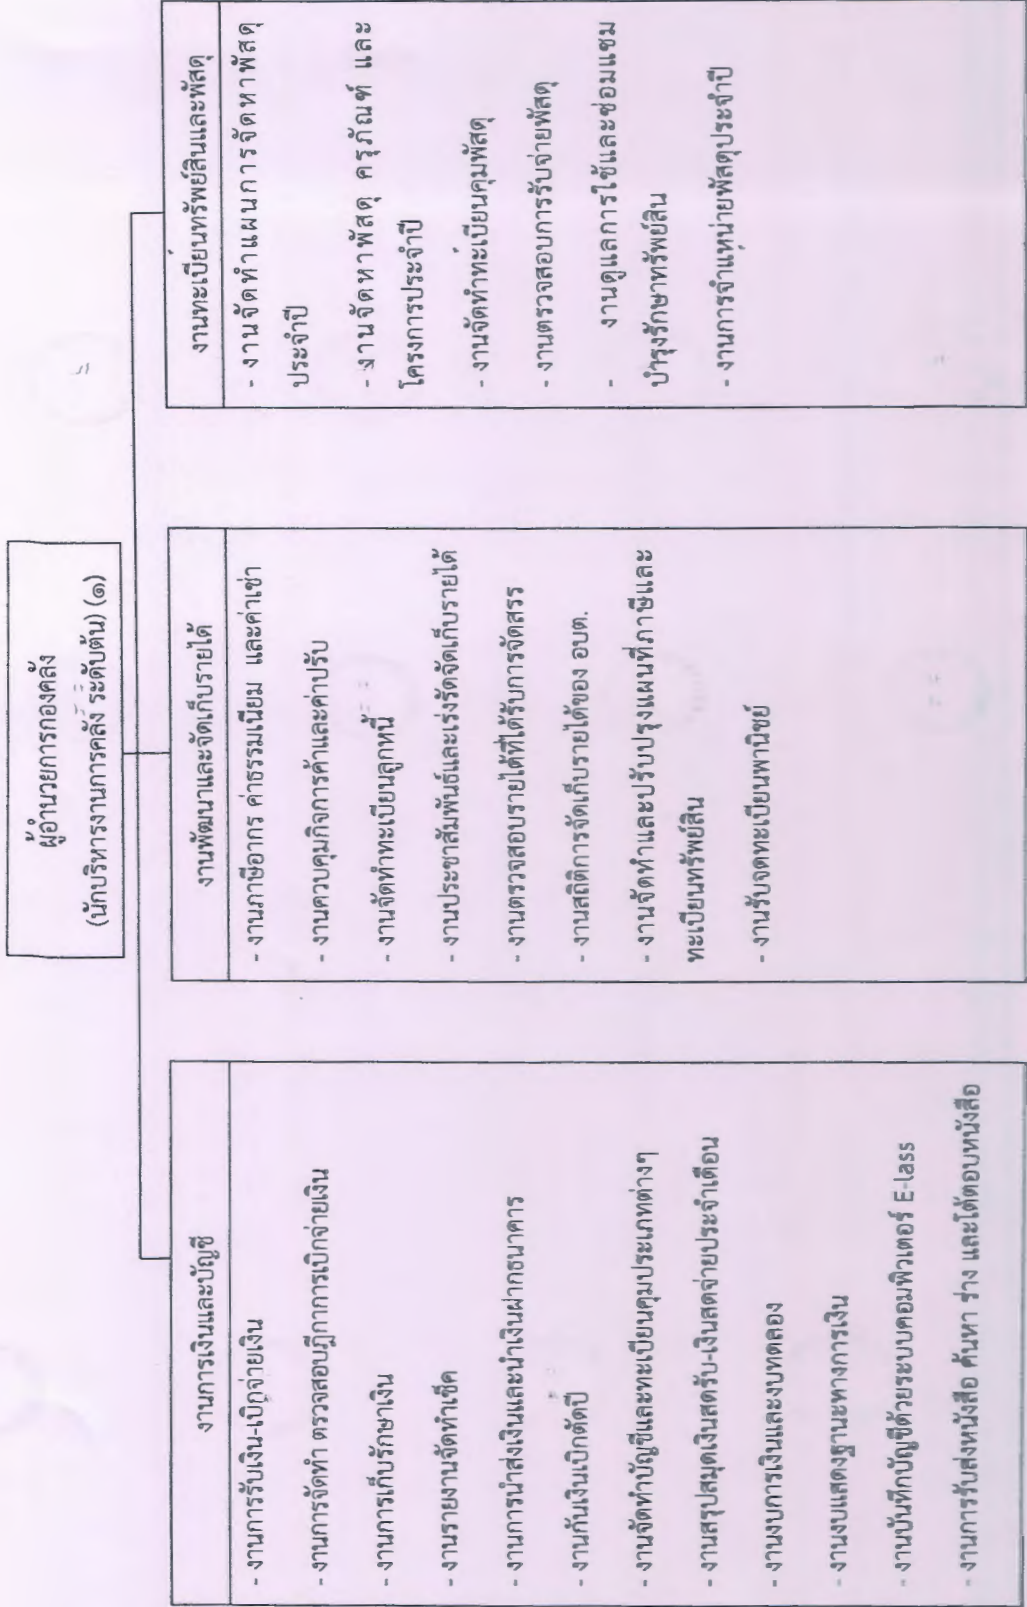 ผู้อำนวยการกองคลัง
(นักบริหารงานการคลัง ระดับต้น) (๑)
งานการเงินและบัญชี
- งานการรับเงิน-เบิกจ่ายเงิน
- งานการจัดทำ ตรวจสอบฎีกาการเบิกจ่ายเงิน
- งานการเก็บรักษาเงิน
- งานรายงานจัดทำเช็ค
- งานการนำส่งเงินและนำเงินฝากธนาคาร
- งานกันเงินเบิกตัดปี
- งานจัดทำบัญชีและทะเบียนคุมประเภทต่างๆ
- งานสรุปสมุดเงินสดรับ-เงินสดจ่ายประจำเดือน
- งานงบการเงินและงบทดลอง
- งานงบแสดงฐานะทางการเงิน
- งานบันทึกบัญชีด้วยระบบคอมพิวเตอร์ E-lass
- งานการรับส่งหนังสือ ค้นหา ร่าง และโต้ตอบหนังสือ
งานพัฒนาและจัดเก็บรายได้
- งานภาษีอากร ค่าธรรมเนียม และค่าเช่า
- งานควบคุมกิจการค้าและค่าปรับ
- งานจัดทำทะเบียนลูกหนี้
- งานประชาสัมพันธ์และเร่งรัดจัดเก็บรายได้
- งานตรวจสอบรายได้ที่ได้รับการจัดสรร
- งานสถิติการจัดเก็บรายได้ของ อบต.
- งานจัดทำและปรับปรุงแผนที่ภาษีและ
ทะเบียนทรัพย์สิน
- งานรับจดทะเบียนพานิชย์
งานทะเบียนทรัพย์สินและพัสดุ
- งานจัดทำแผนการจัดหาพัสดุ
ประจำปี
- งานจัดหาพัสดุ ครุภัณฑ์ และ
โครงการประจำปี
- งานจัดทำทะเบียนคุมพัสดุ
- งานตรวจสอบการรับจ่ายพัสดุ
- งานดูแลการใช้และซ่อมแซม
บำรุงรักษาทรัพย์สิน
- งานการจำแหน่ายพัสดุประจำปี